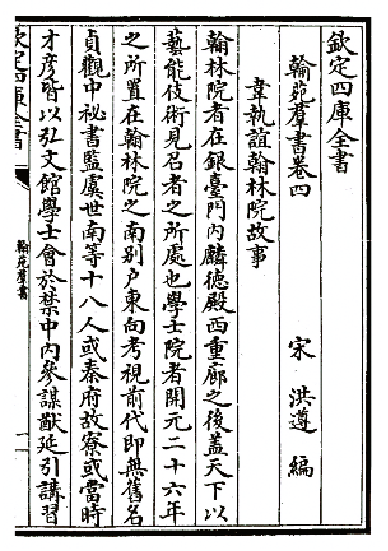 欽定四庫全書
翰苑羣書卷四
宋 洪遵 編
韋執誼翰林院故事
翰林院者在銀臺門內麟德殿西重廊之後蓋天下以
藝能伎術見召者之所處也學士院者開元二十六年
之所置在翰林院之南別户東向考視前代即無舊名
貞觀中祕書監虞世南等十八人或秦府故寮或當時
才彦皆以弘文館學士會於禁中內參謀猷延引講習
欽定四庫全書
翰苑羣書
一